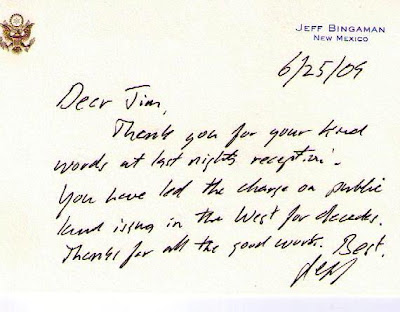 JEFF BINGAMAN
NEW MEXICO
6/25/09
Dear Jim,
Thanks you for your kind
words at last nights reception.
You have led the charge on public
land issues in the West for decades.
Thanks for all the good work. Best.
Jeff